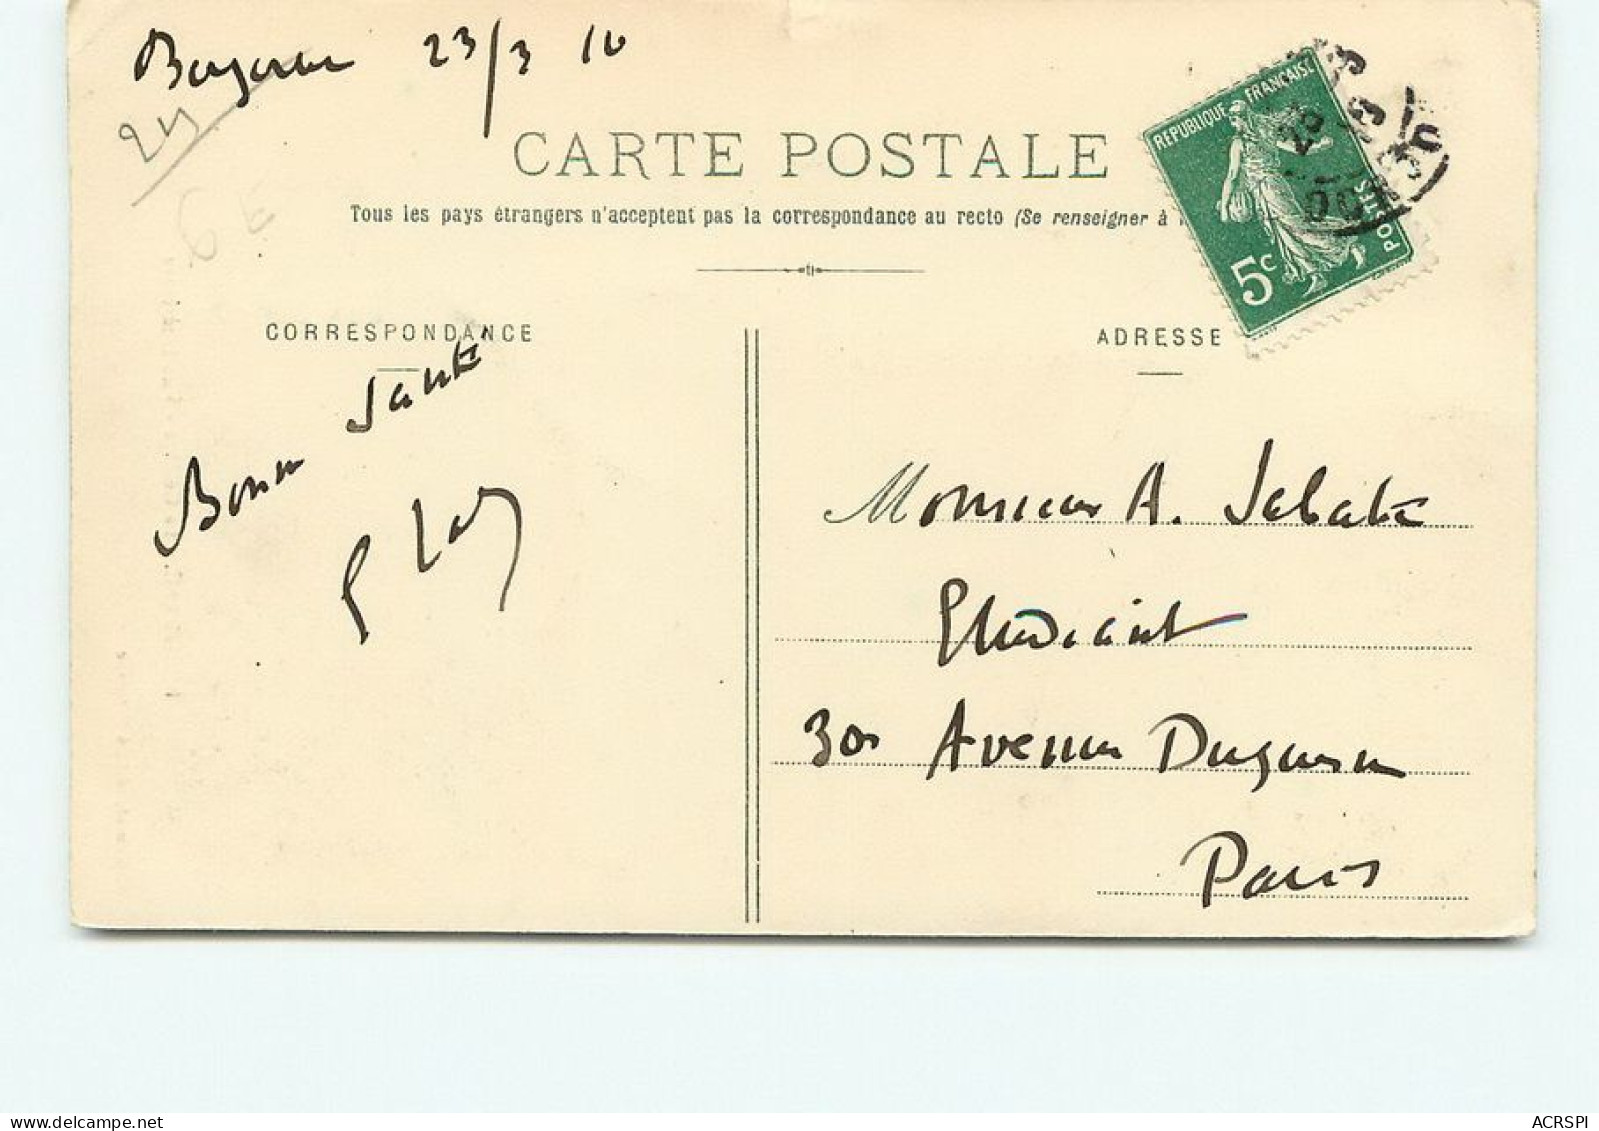 Bergerac 23/3 10
24
CARTE POSTALE
Tous les pays étrangers n'acceptent pas la correspondance au recto (Se renseigner à
REPUBLIQUE FRANÇAISE
POSTES
5c
6 E
CORRESPONDANCE
ADRESSE
Bonne Santé
Monsieur A.
Etudiant
30 Avenue Duquesne
Paris
ACRSPI